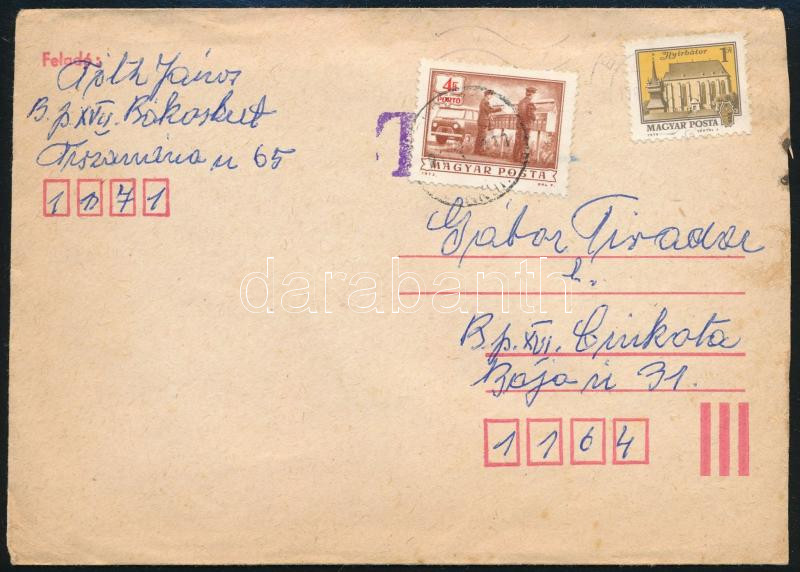 Feladó:
Tóth János
B.p. XVII. Rákoskert
Tiszamária u 65
1171
T
4Ft
PORTÓ
MAGYAR POSTA
1973
Nyírbátor
1Ft
MAGYAR POSTA
1979
Gábor Tivadar
B.p. XVI. Cinkota
Bája u 31.
1164
darabanth